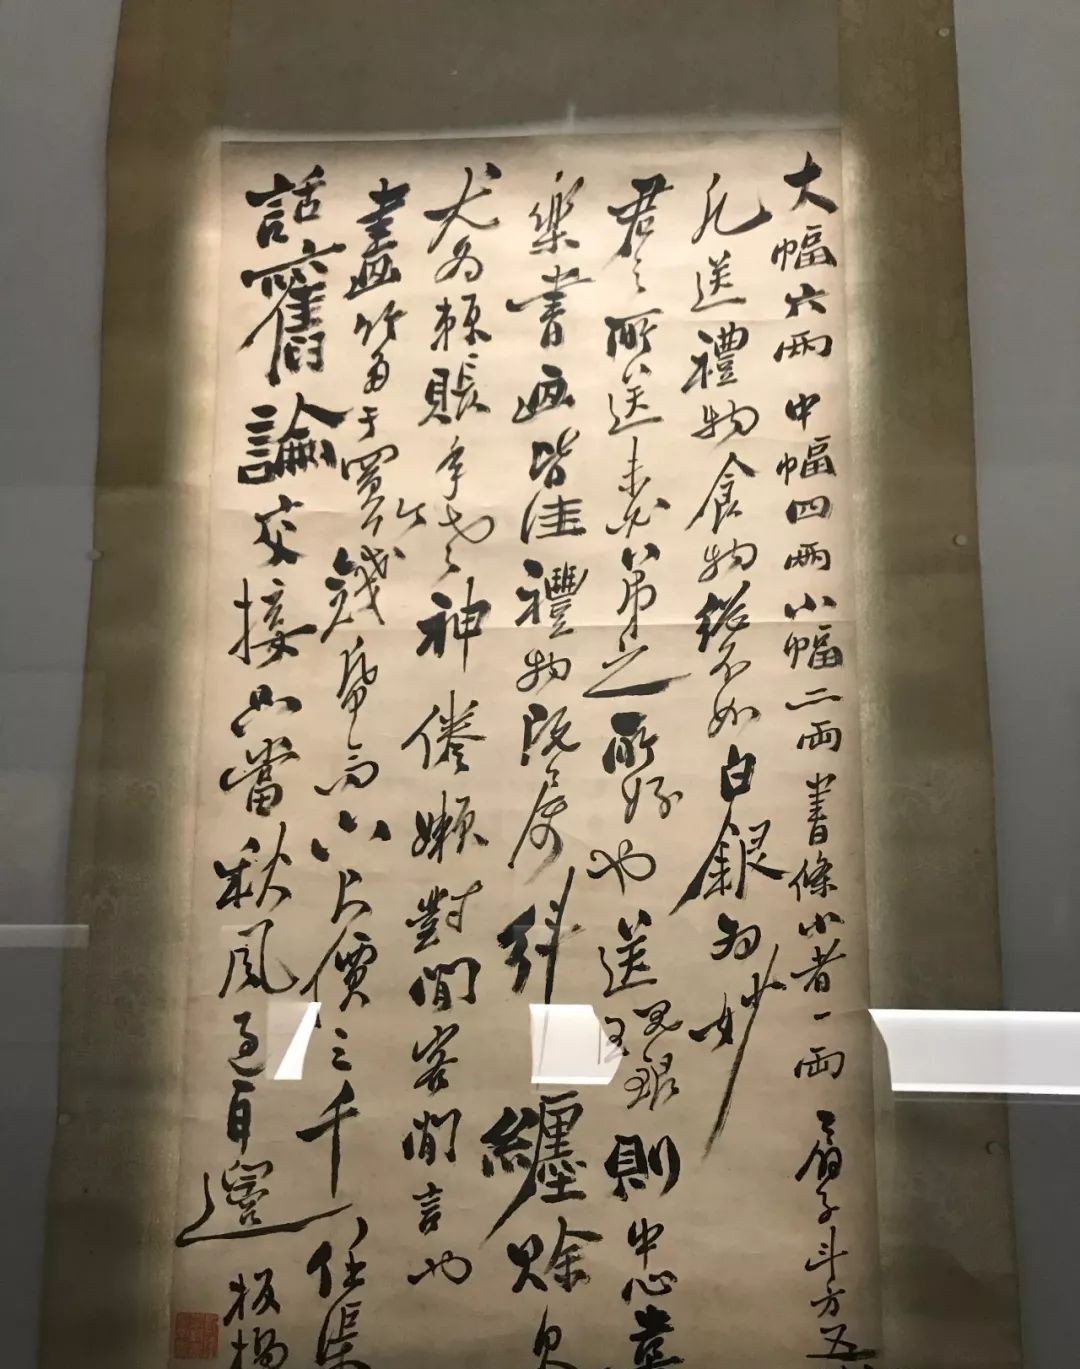 大幅六兩中幅四兩小幅二兩書條小者一兩扇子斗方五
凡送禮物食物總不如白銀為妙
君之所送未必弟之所好也送現銀則中心喜
樂書畫皆佳禮物既屬糾纏賒欠
尤為賴賬年老神倦懶對閒客閒言也
畫竹多于買竹錢紙高六尺價三千任渠
話舊論交接只當秋風過耳邊
板橋